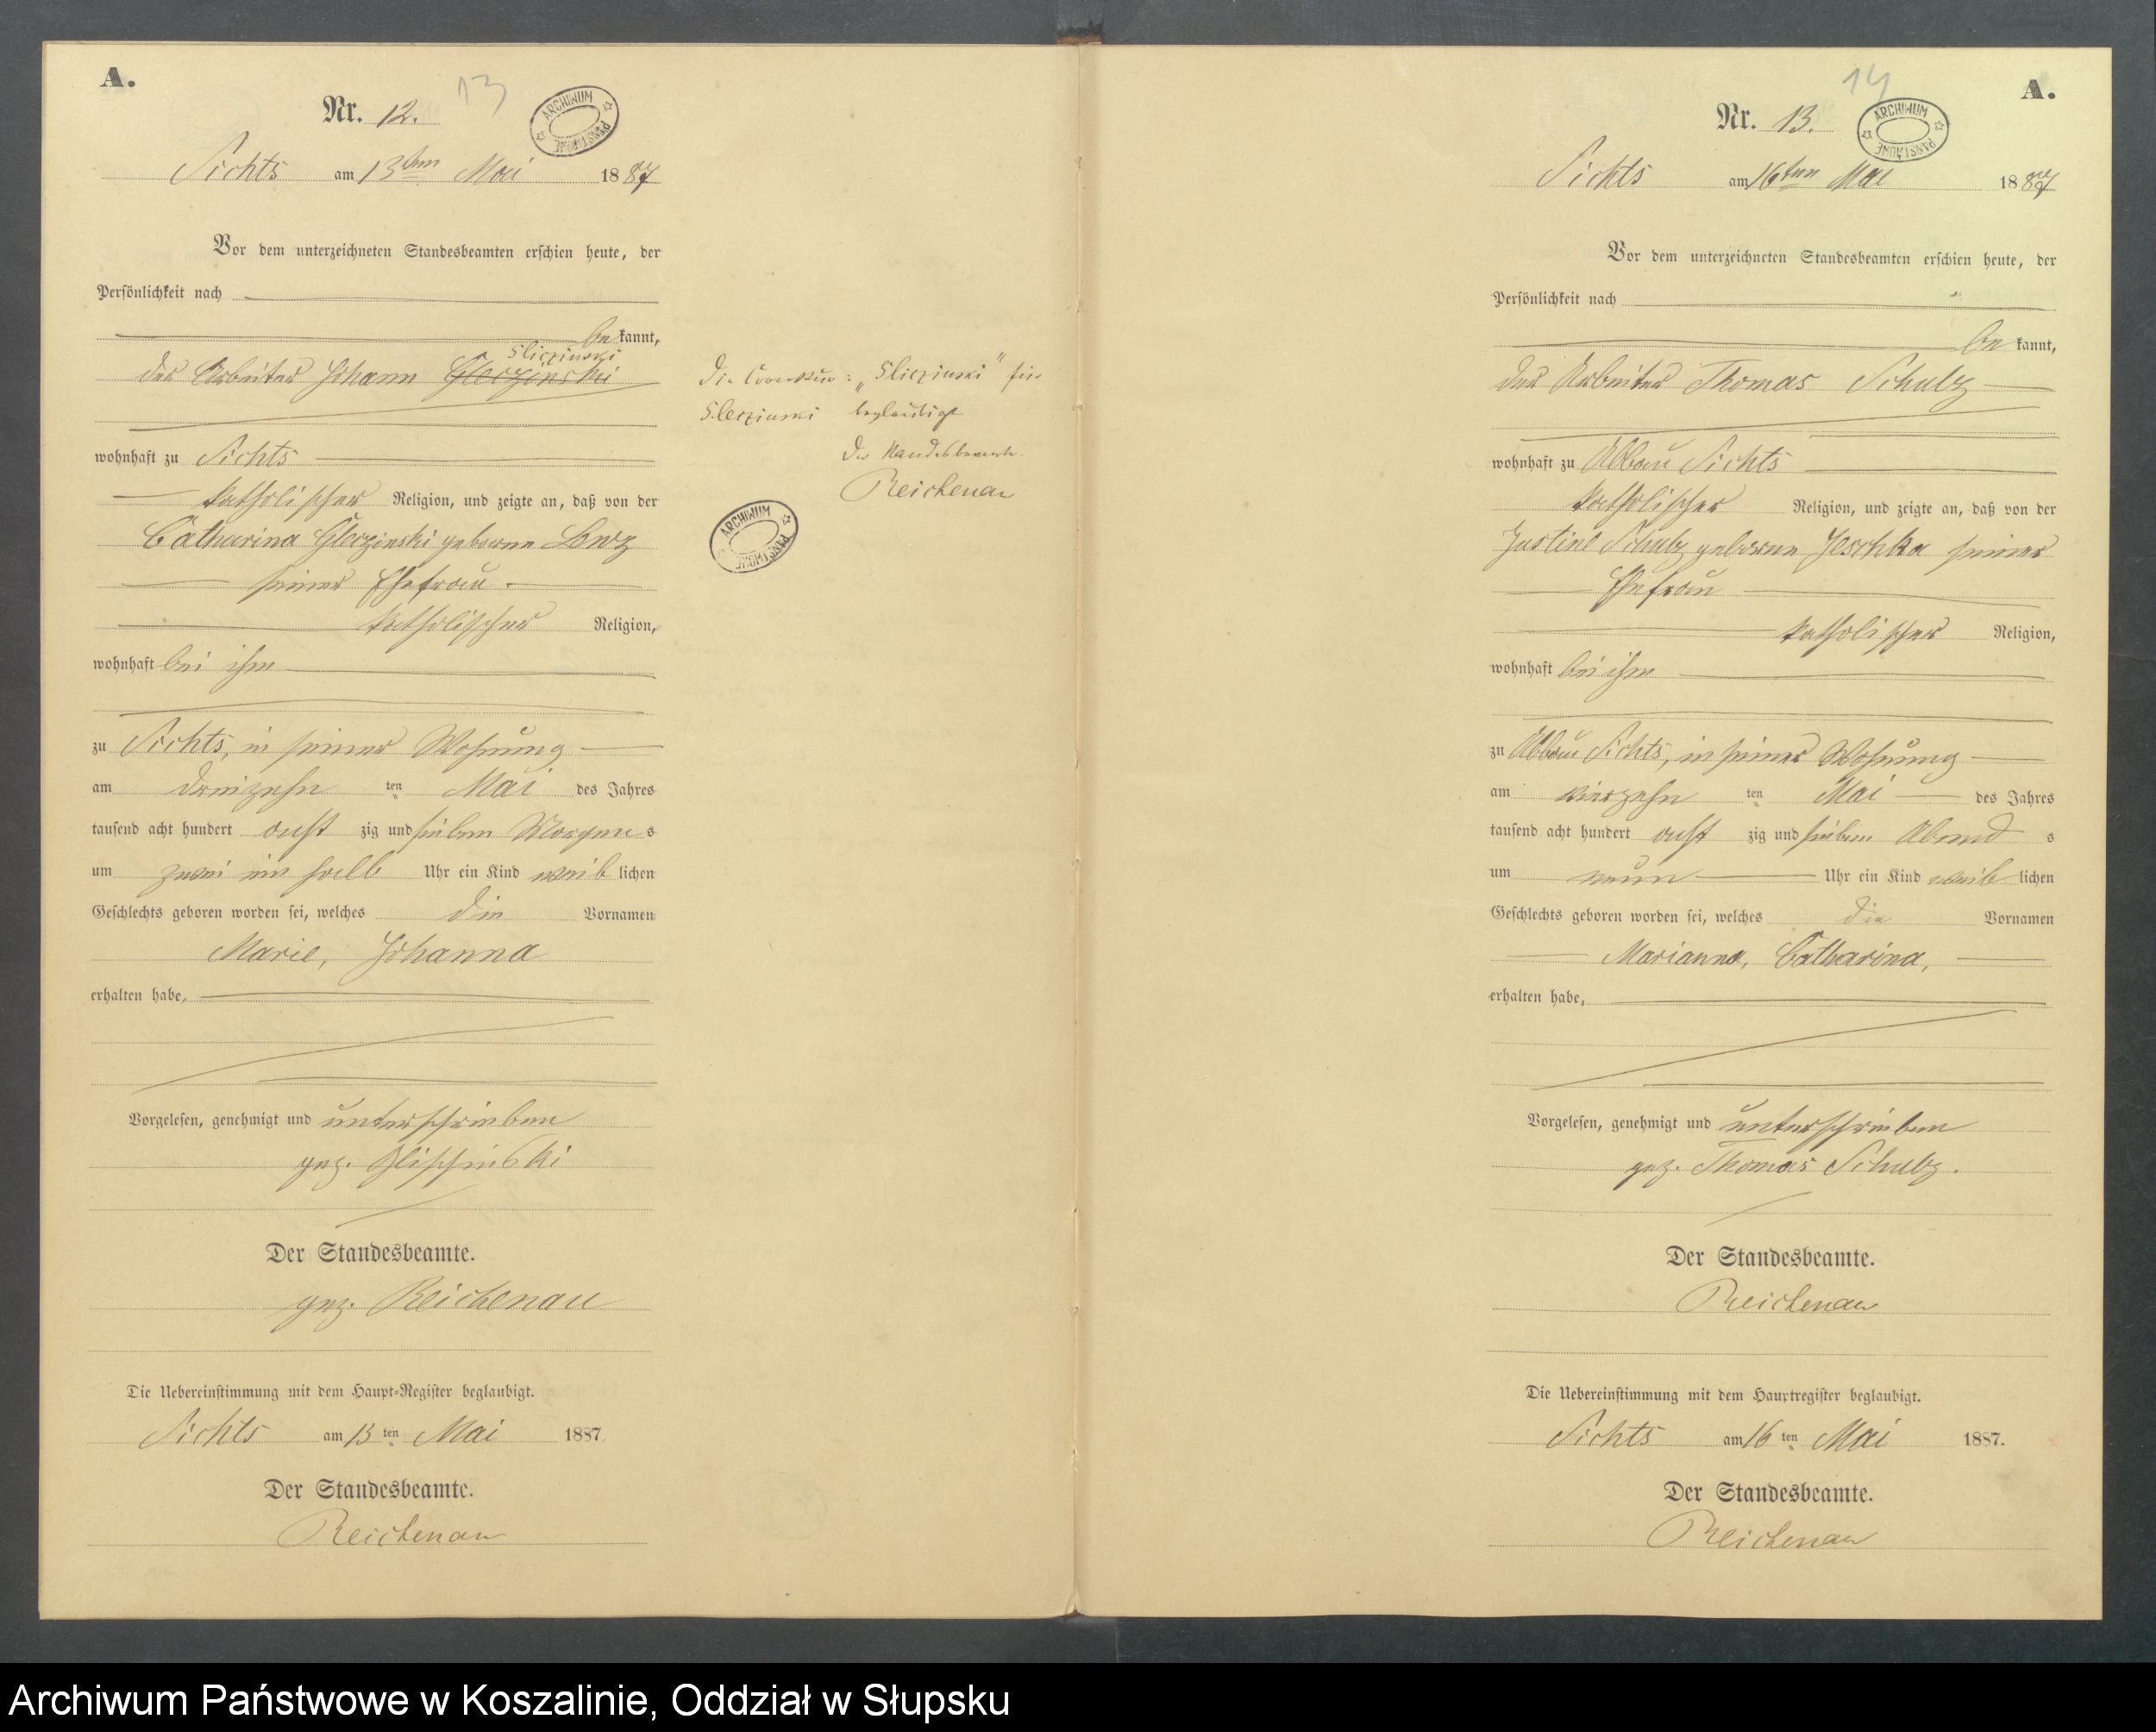 A.
13
Nr. 12.
ARCHIWUM PAŃSTWOWE
Sichts am 13ten Mai 1887
Vor dem unterzeichneten Standesbeamten erschien heute, der
Persönlichkeit nach
bekannt,
Sliczinski
der Arbeiter Johann Gleczinski
wohnhaft zu Sichts
katholischer Religion, und zeigte an, daß von der
Catharina Gleczinski geborene
seiner Ehefrau
katholischer Religion,
wohnhaft bei ihm
zu Sichts, in seiner Wohnung
am dreizehn ten Mai des Jahres
tausend acht hundert acht zig und sieben Morgens
um zwei ein halb Uhr ein Kind weiblichen
Geschlechts geboren worden sei, welches die Vornamen
Marie, Johanna
erhalten habe,
Vorgelesen, genehmigt und unterschrieben
gez.
Der Standesbeamte.
gez. Reichenau
Die Uebereinstimmung mit dem Haupt-Register beglaubigt.
Sichts am 13 ten Mai 1887.
Der Standesbeamte.
Reichenau
Die : „Sliczinski" für
Sleczinski beglaubigt
Der Standesbeamte.
Reichenau
ARCHIWUM PAŃSTWOWE
14
A.
Nr. 13.
ARCHIWUM PAŃSTWOWE
Sichts am 16ten Mai 1887
Vor dem unterzeichneten Standesbeamten erschien heute, der
Persönlichkeit nach
bekannt,
der Arbeiter Thomas Schulz
wohnhaft zu Abbau Sichts
katholischer Religion, und zeigte an, daß von der
Justine Schulz geborene Jeschka seiner
Ehefrau
katholischer Religion,
wohnhaft bei ihm
zu Abbau Sichts, in seiner Wohnung
am vierzehn ten Mai des Jahres
tausend acht hundert acht zig und sieben Abends
um neun Uhr ein Kind weiblichen
Geschlechts geboren worden sei, welches die Vornamen
Marianna, Catharina,
erhalten habe,
Vorgelesen, genehmigt und unterschrieben
gez. Thomas Schulz.
Der Standesbeamte.
Reichenau
Die Uebereinstimmung mit dem Hauptregister beglaubigt.
Sichts am 16 ten Mai 1887.
Der Standesbeamte.
Reichenau
Archiwum Państwowe w Koszalinie, Oddział w Słupsku